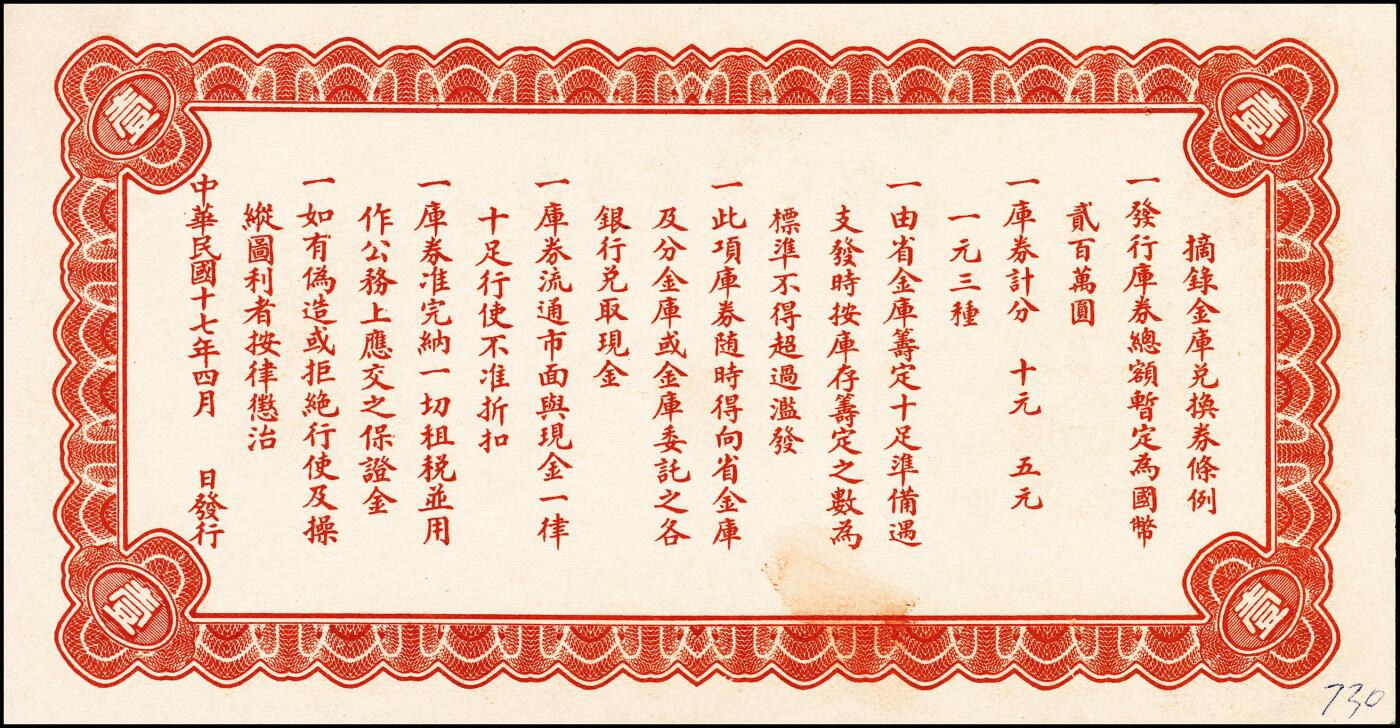 摘錄金庫兑換券條例
一發行庫券總額暫定為國幣
貳百萬圓
一庫券計分　十元　五元
一元三種
一由省金庫籌定十足準備遇
支發時按庫存籌定之數為
標準不得超過濫發
一此項庫券随時得向省金庫
及分金庫或金庫委託之各
銀行兑取現金
一庫券流通市面與現金一律
十足行使不准折扣
一庫券准完納一切租税並用
作公務上應交之保證金
一如有偽造或拒絶行使及操
縱圖利者按律懲治
中華民國十七年四月　日發行
壹
壹
壹
壹
730